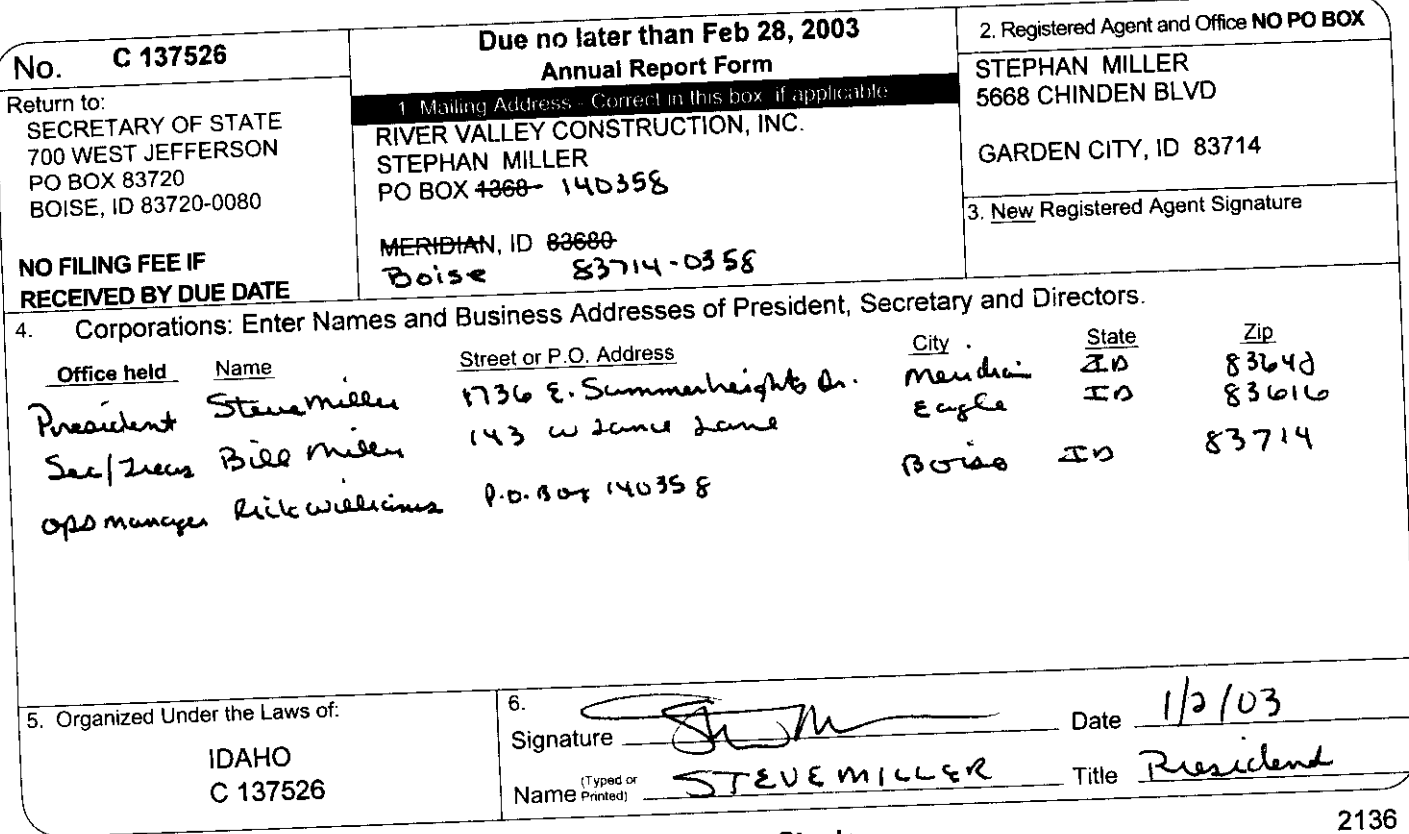 No. C 137526
Return to:
SECRETARY OF STATE
700 WEST JEFFERSON
PO BOX 83720
BOISE, ID 83720-0080
NO FILING FEE IF
RECEIVED BY DUE DATE
Due no later than Feb 28, 2003
Annual Report Form
1. Mailing Address - Correct in this box, if applicable
RIVER VALLEY CONSTRUCTION, INC.
STEPHAN MILLER
PO BOX 1368 140358
MERIDIAN, ID 83680
Boise 83714-0358
2. Registered Agent and Office NO PO BOX
STEPHAN MILLER
5668 CHINDEN BLVD
GARDEN CITY, ID 83714
3. New Registered Agent Signature
4. Corporations: Enter Names and Business Addresses of President, Secretary and Directors.
Office held Name Street or P.O. Address City State Zip
President Steve Miller 1736 E. Summerheights Dr. Meridian ID 83642
Sec/Treas Bill Miller 143 W Lance Lane Eagle ID 83616
Ops manager Rick Williams P.O. Box 140358 Boise ID 83714
5. Organized Under the Laws of:
IDAHO
C 137526
6.
Signature Date 1/2/03
Name (Typed or Printed) STEVE MILLER Title President
2136